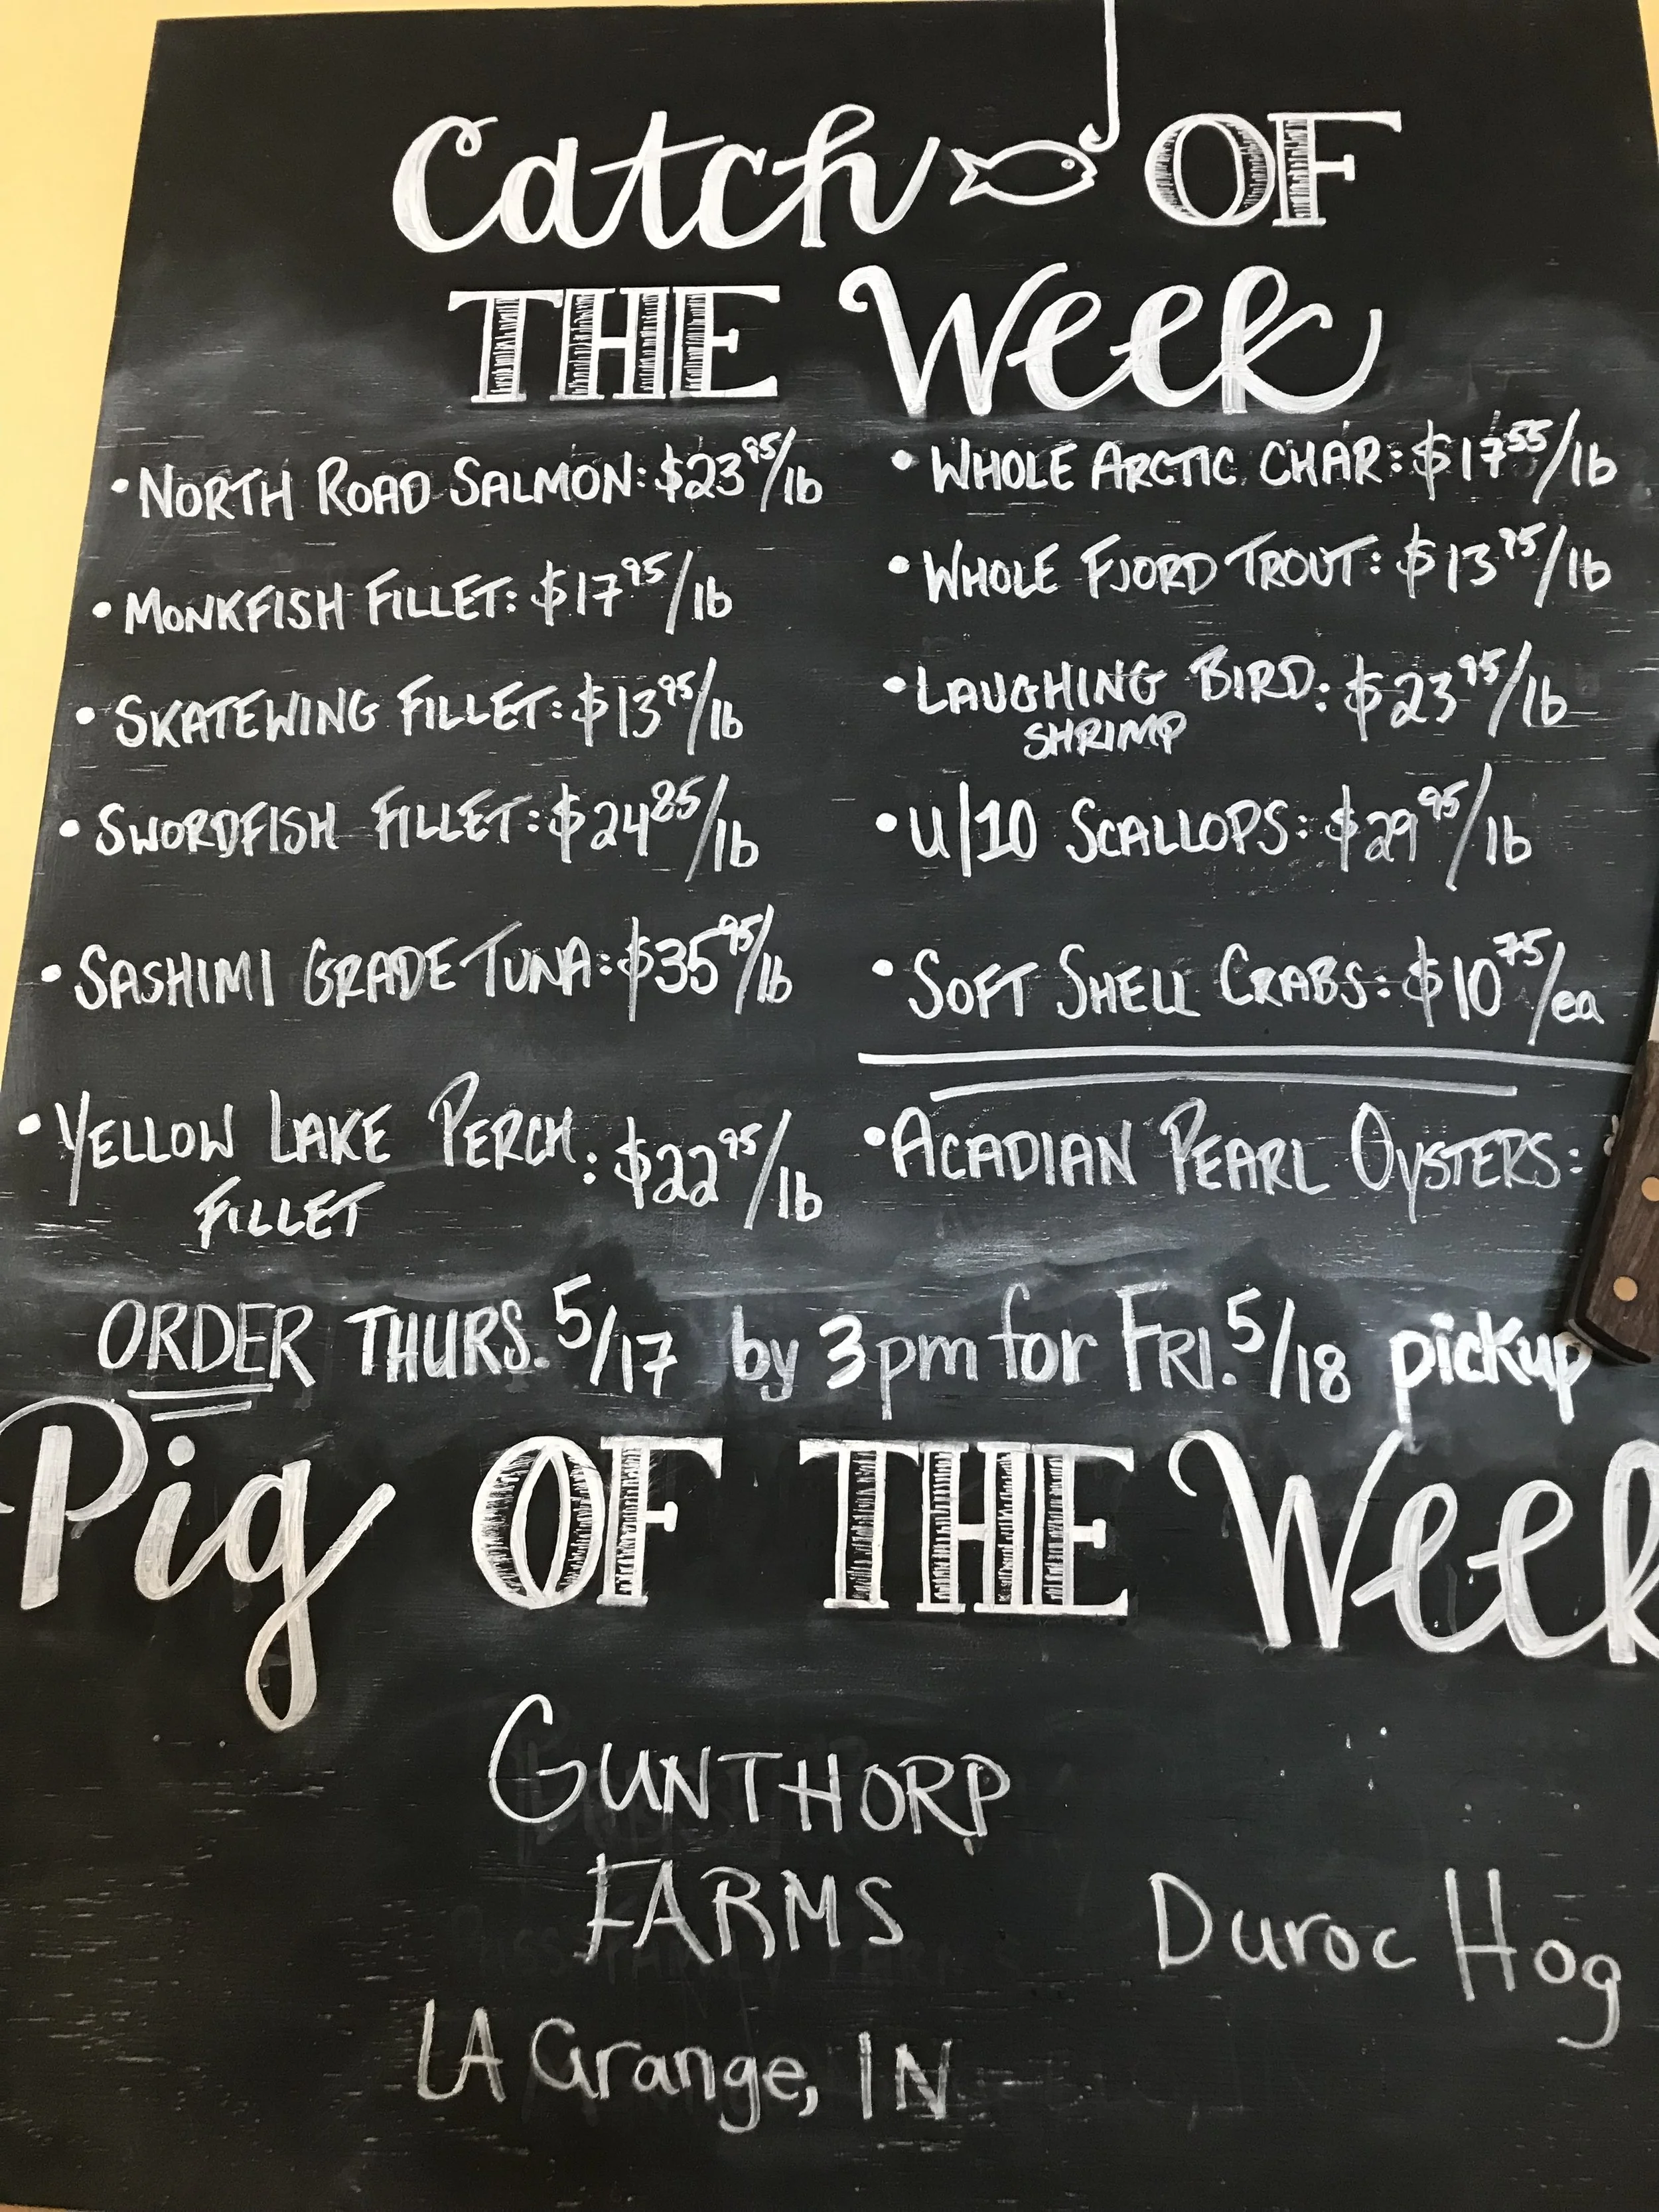 Catch OF
THE Week
• NORTH ROAD SALMON: $23 95/lb
• MONKFISH FILLET: $17 95/lb
• SKATEWING FILLET: $13 95/lb
• SWORDFISH FILLET: $24 85/lb
• SASHIMI GRADE TUNA: $35 95/lb
• YELLOW LAKE PERCH : $22 95/lb
FILLET
• WHOLE ARCTIC CHAR: $17 55/lb
• WHOLE FJORD TROUT: $13 95/lb
• LAUGHING BIRD: $23 95/lb
SHRIMP
• U/10 SCALLOPS: $29 95/lb
• SOFT SHELL CRABS: $10 75/ea
• ACADIAN PEARL OYSTERS:
ORDER THURS. 5/17 by 3pm for FRI. 5/18 pickup
Pig OF THE Week
GUNTHORP
FARMS
Duroc Hog
LA Grange, IN